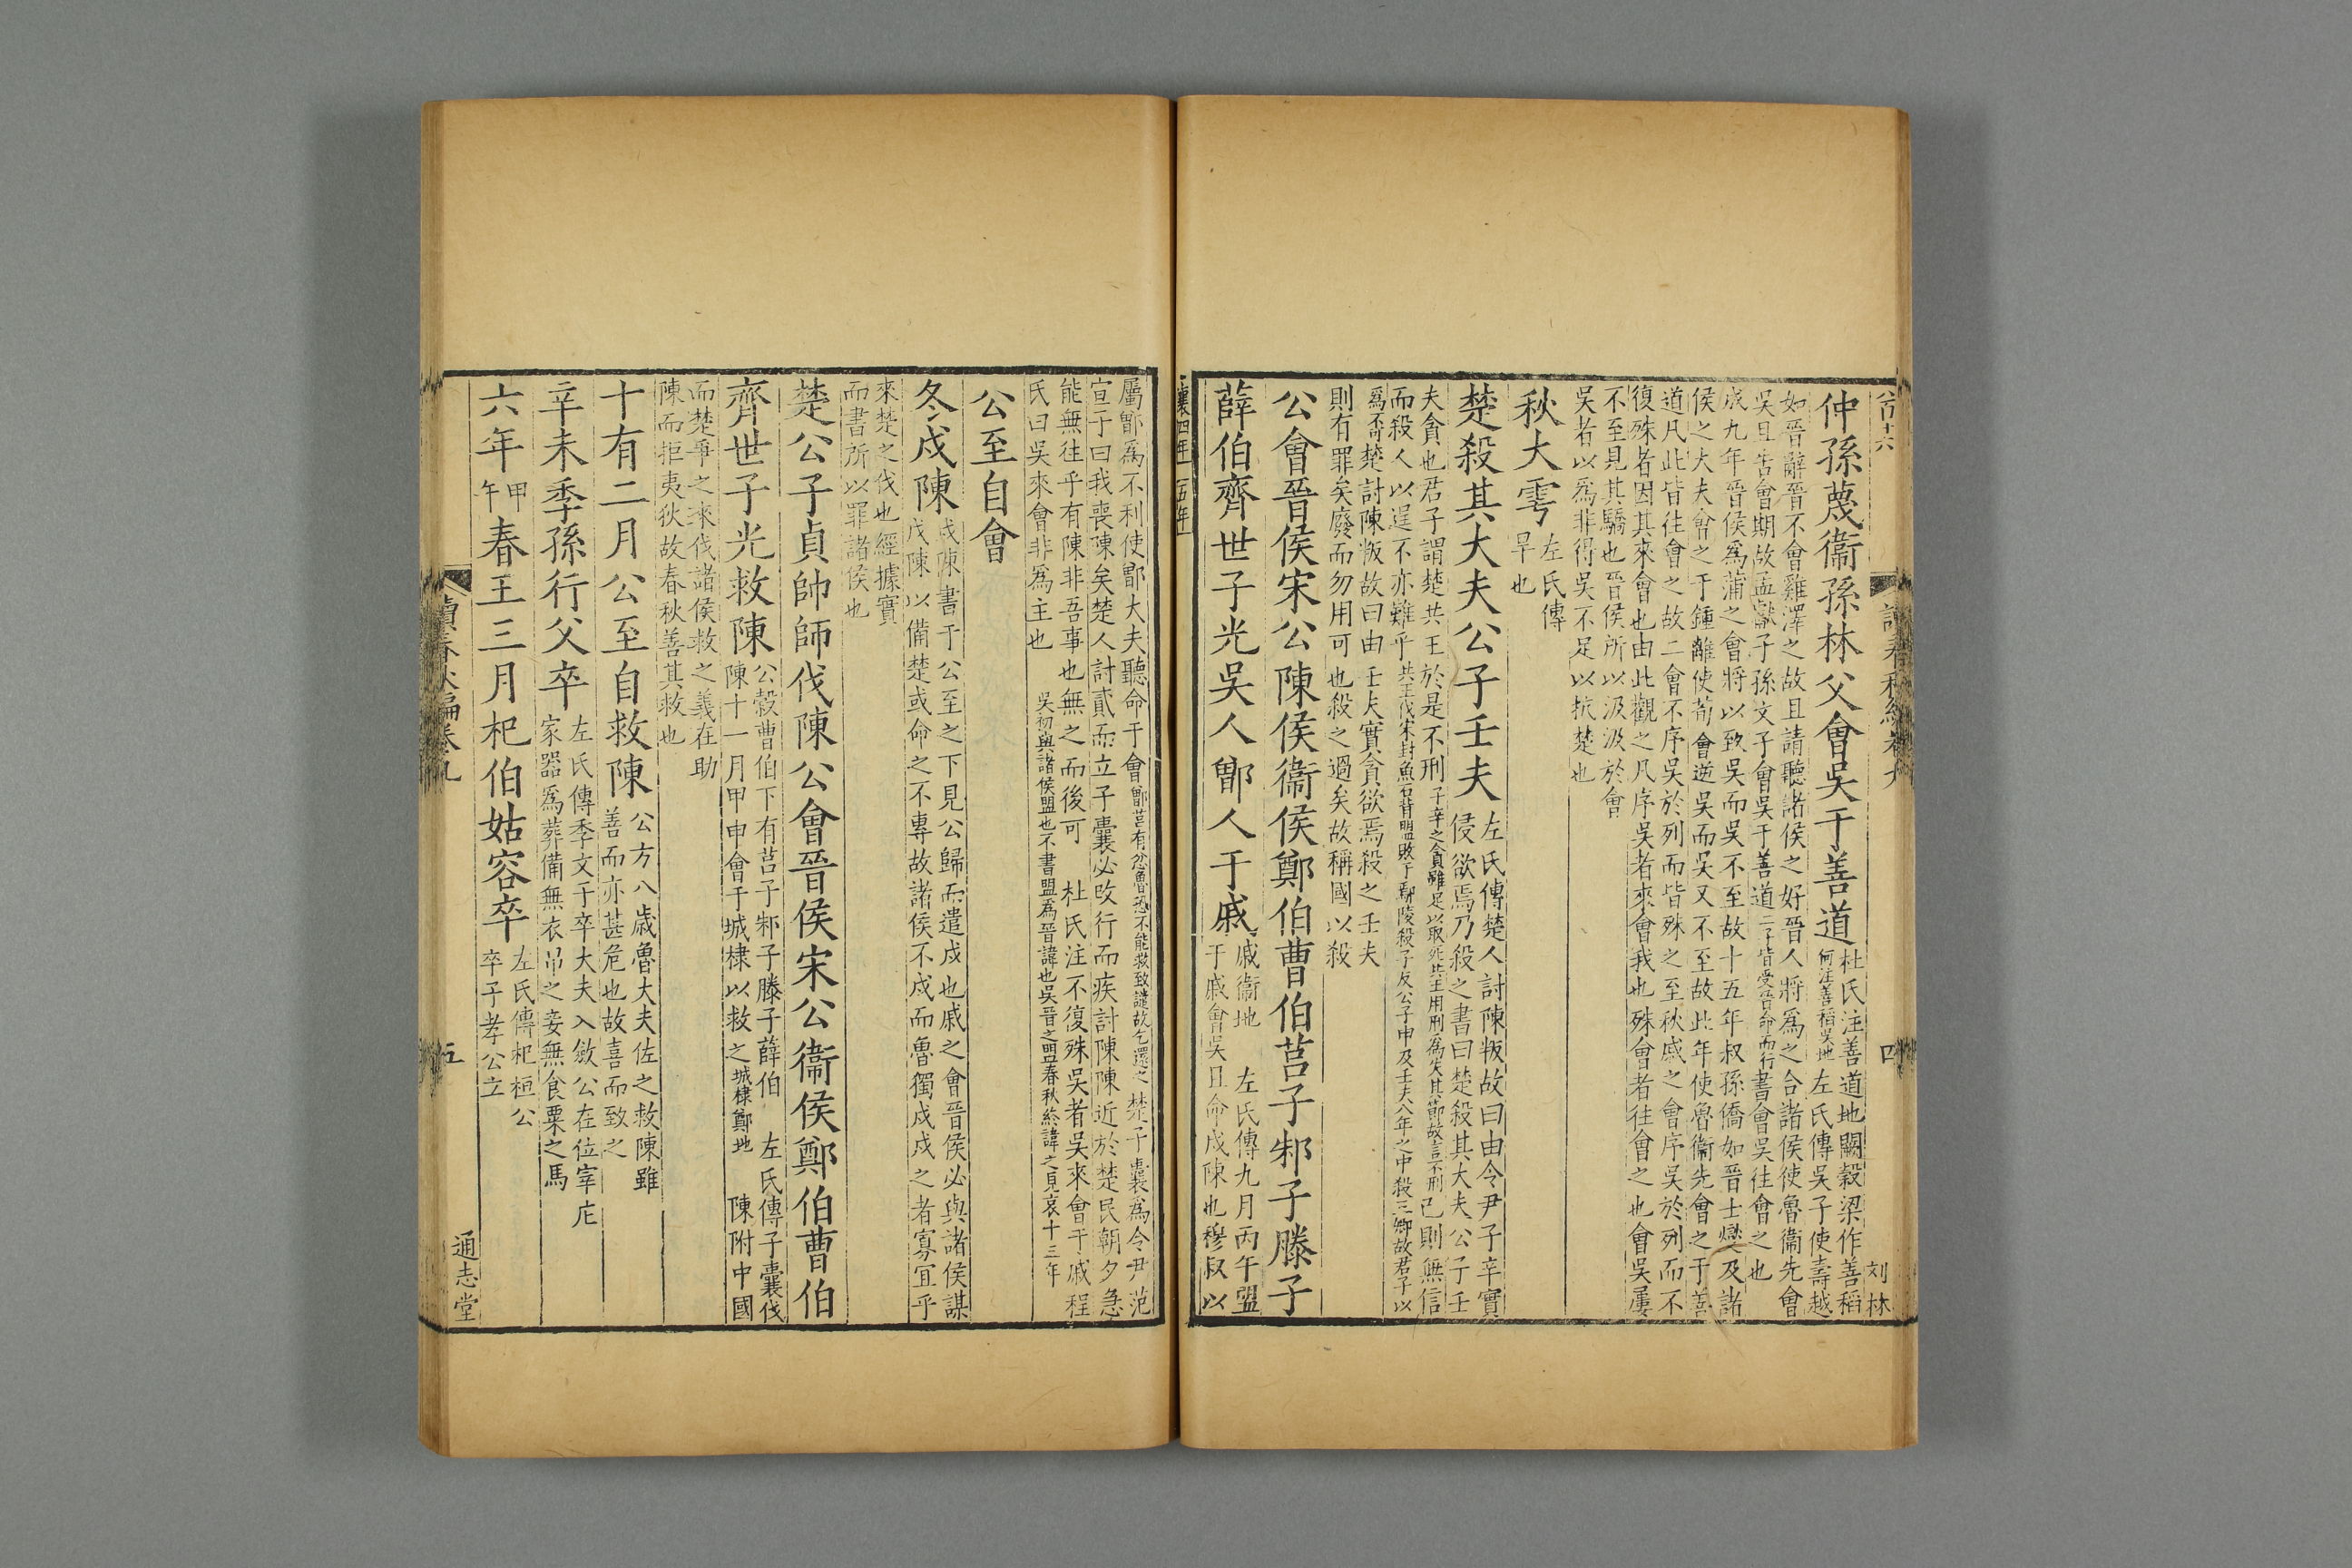 仲孫蔑衞孫林父會吳于善道
杜氏注善道地闕穀梁作善稻
何注善稻吳地 左氏傳吳子使壽越
如晉辭晉不會雞澤之故且請聽諸侯之好晉人將爲之合諸侯使魯衞先會
吳且告會期故孟獻子孫文子會吳于善道二子皆受晉命而行書會吳往會之也
成九年晉侯爲蒲之會將以致吳而吳不至故十五年叔孫僑如晉士燮及諸
侯之大夫會之于鍾離使荀會逆吳而吳又不至故此年使魯衞先會之于善
道凡此皆往會之故二會不序吳於列而皆殊之至秋戚之會序吳於列而不
復殊者因其來會也由此觀之凡序吳者來會我也殊會者往會之也會吳屢
不至見其驕也晉侯所以汲汲於會
吳者以爲非得吳不足以抗楚也
秋大雩
左氏傳
旱也
楚殺其大夫公子壬夫
左氏傳楚人討陳叛故曰由令尹子辛實
侵欲焉乃殺之書曰楚殺其大夫公子壬
夫貪也君子謂楚共王於是不刑子辛之貪雖足以取死共王用刑爲失其節故言不刑己則無信
而殺人以逞不亦難乎共王伐宋封魚石背盟敗于鄢陵殺子反公子申及壬夫八年之中殺三卿故君子以
爲不可楚討陳叛故曰由壬夫實貪欲焉殺之壬夫
則有罪矣廢而勿用可也殺之過矣故稱國以殺
公會晉侯宋公陳侯衞侯鄭伯曹伯莒子邾子滕子
薛伯齊世子光吳人鄫人于戚
戚衞地 左氏傳九月丙午盟
于戚會吳且命戍陳也穆叔以
襄四年 五年
屬鄫爲不利使鄫大夫聽命于會鄫莒有忿魯恐不能救致譴故乞還之楚子囊爲令尹范
宣子曰我喪陳矣楚人討貳而立子囊必改行而疾討陳陳近於楚民朝夕急
能無往乎有陳非吾事也無之而後可 杜氏注不復殊吳者吳來會于戚程
氏曰吳來會非爲主也 吳初與諸侯盟也不書盟爲晉諱也吳晉之盟春秋終諱之見哀十三年
公至自會
冬戍陳
戍陳書于公至之下見公歸而遣戍也戚之會晉侯必與諸侯謀
戍陳以備楚或命之不專故諸侯不戍而魯獨戍戍之者寡宜乎
來楚之伐也經據實
而書所以罪諸侯也
楚公子貞帥師伐陳公會晉侯宋公衞侯鄭伯曹伯
齊世子光救陳
公穀曹伯下有莒子邾子滕子薛伯 左氏傳子囊伐
陳十一月甲申會于城棣以救之城棣鄭地 陳附中國
而楚爭之來伐諸侯救之義在助
陳而拒夷狄故春秋善其救也
十有二月公至自救陳
公方八歲魯大夫佐之救陳雖
善而亦甚危也故喜而致之
辛未季孫行父卒
左氏傳季文子卒大夫入斂公在位宰庀
家器爲葬備無衣帛之妾無食粟之馬
六年甲午春王三月杞伯姑容卒
左氏傳杞桓公
卒子孝公立
五
通志堂